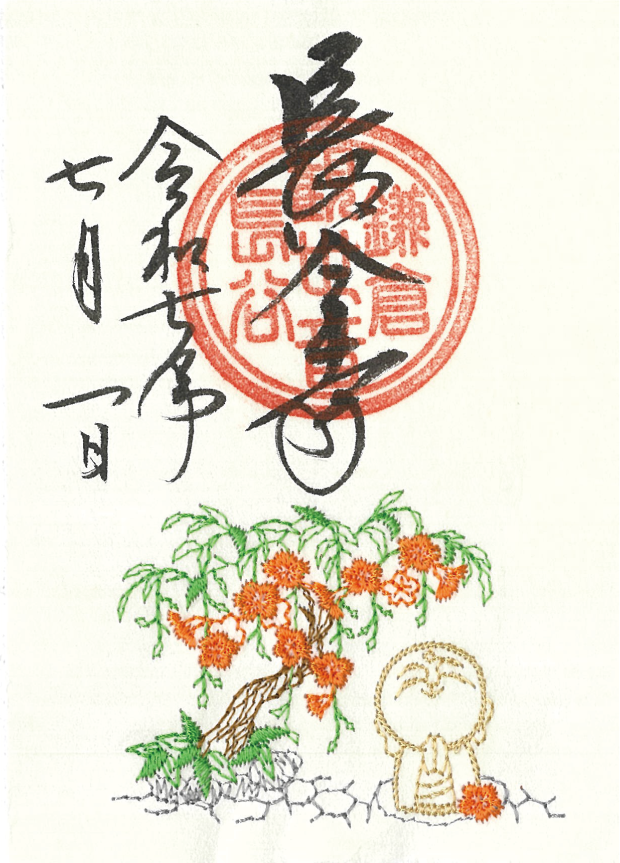 長谷寺
令和七年
七月一日
鎌倉
長谷